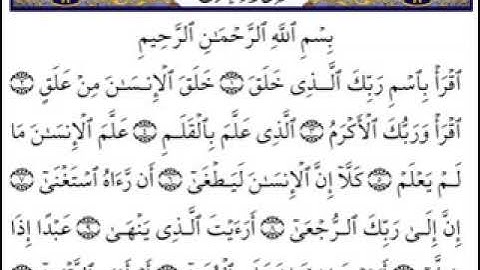 بِسْمِ ٱللَّهِ ٱلرَّحْمَٰنِ ٱلرَّحِيمِ
ٱقْرَأْ بِٱسْمِ رَبِّكَ ٱلَّذِى خَلَقَ ۝١ خَلَقَ ٱلْإِنسَٰنَ مِنْ عَلَقٍ ۝٢
ٱقْرَأْ وَرَبُّكَ ٱلْأَكْرَمُ ۝٣ ٱلَّذِى عَلَّمَ بِٱلْقَلَمِ ۝٤ عَلَّمَ ٱلْإِنسَٰنَ مَا
لَمْ يَعْلَمْ ۝٥ كَلَّآ إِنَّ ٱلْإِنسَٰنَ لَيَطْغَىٰٓ ۝٦ أَن رَّءَاهُ ٱسْتَغْنَىٰٓ ۝٧
إِنَّ إِلَىٰ رَبِّكَ ٱلرُّجْعَىٰٓ ۝٨ أَرَءَيْتَ ٱلَّذِى يَنْهَىٰ ۝٩ عَبْدًا إِذَا